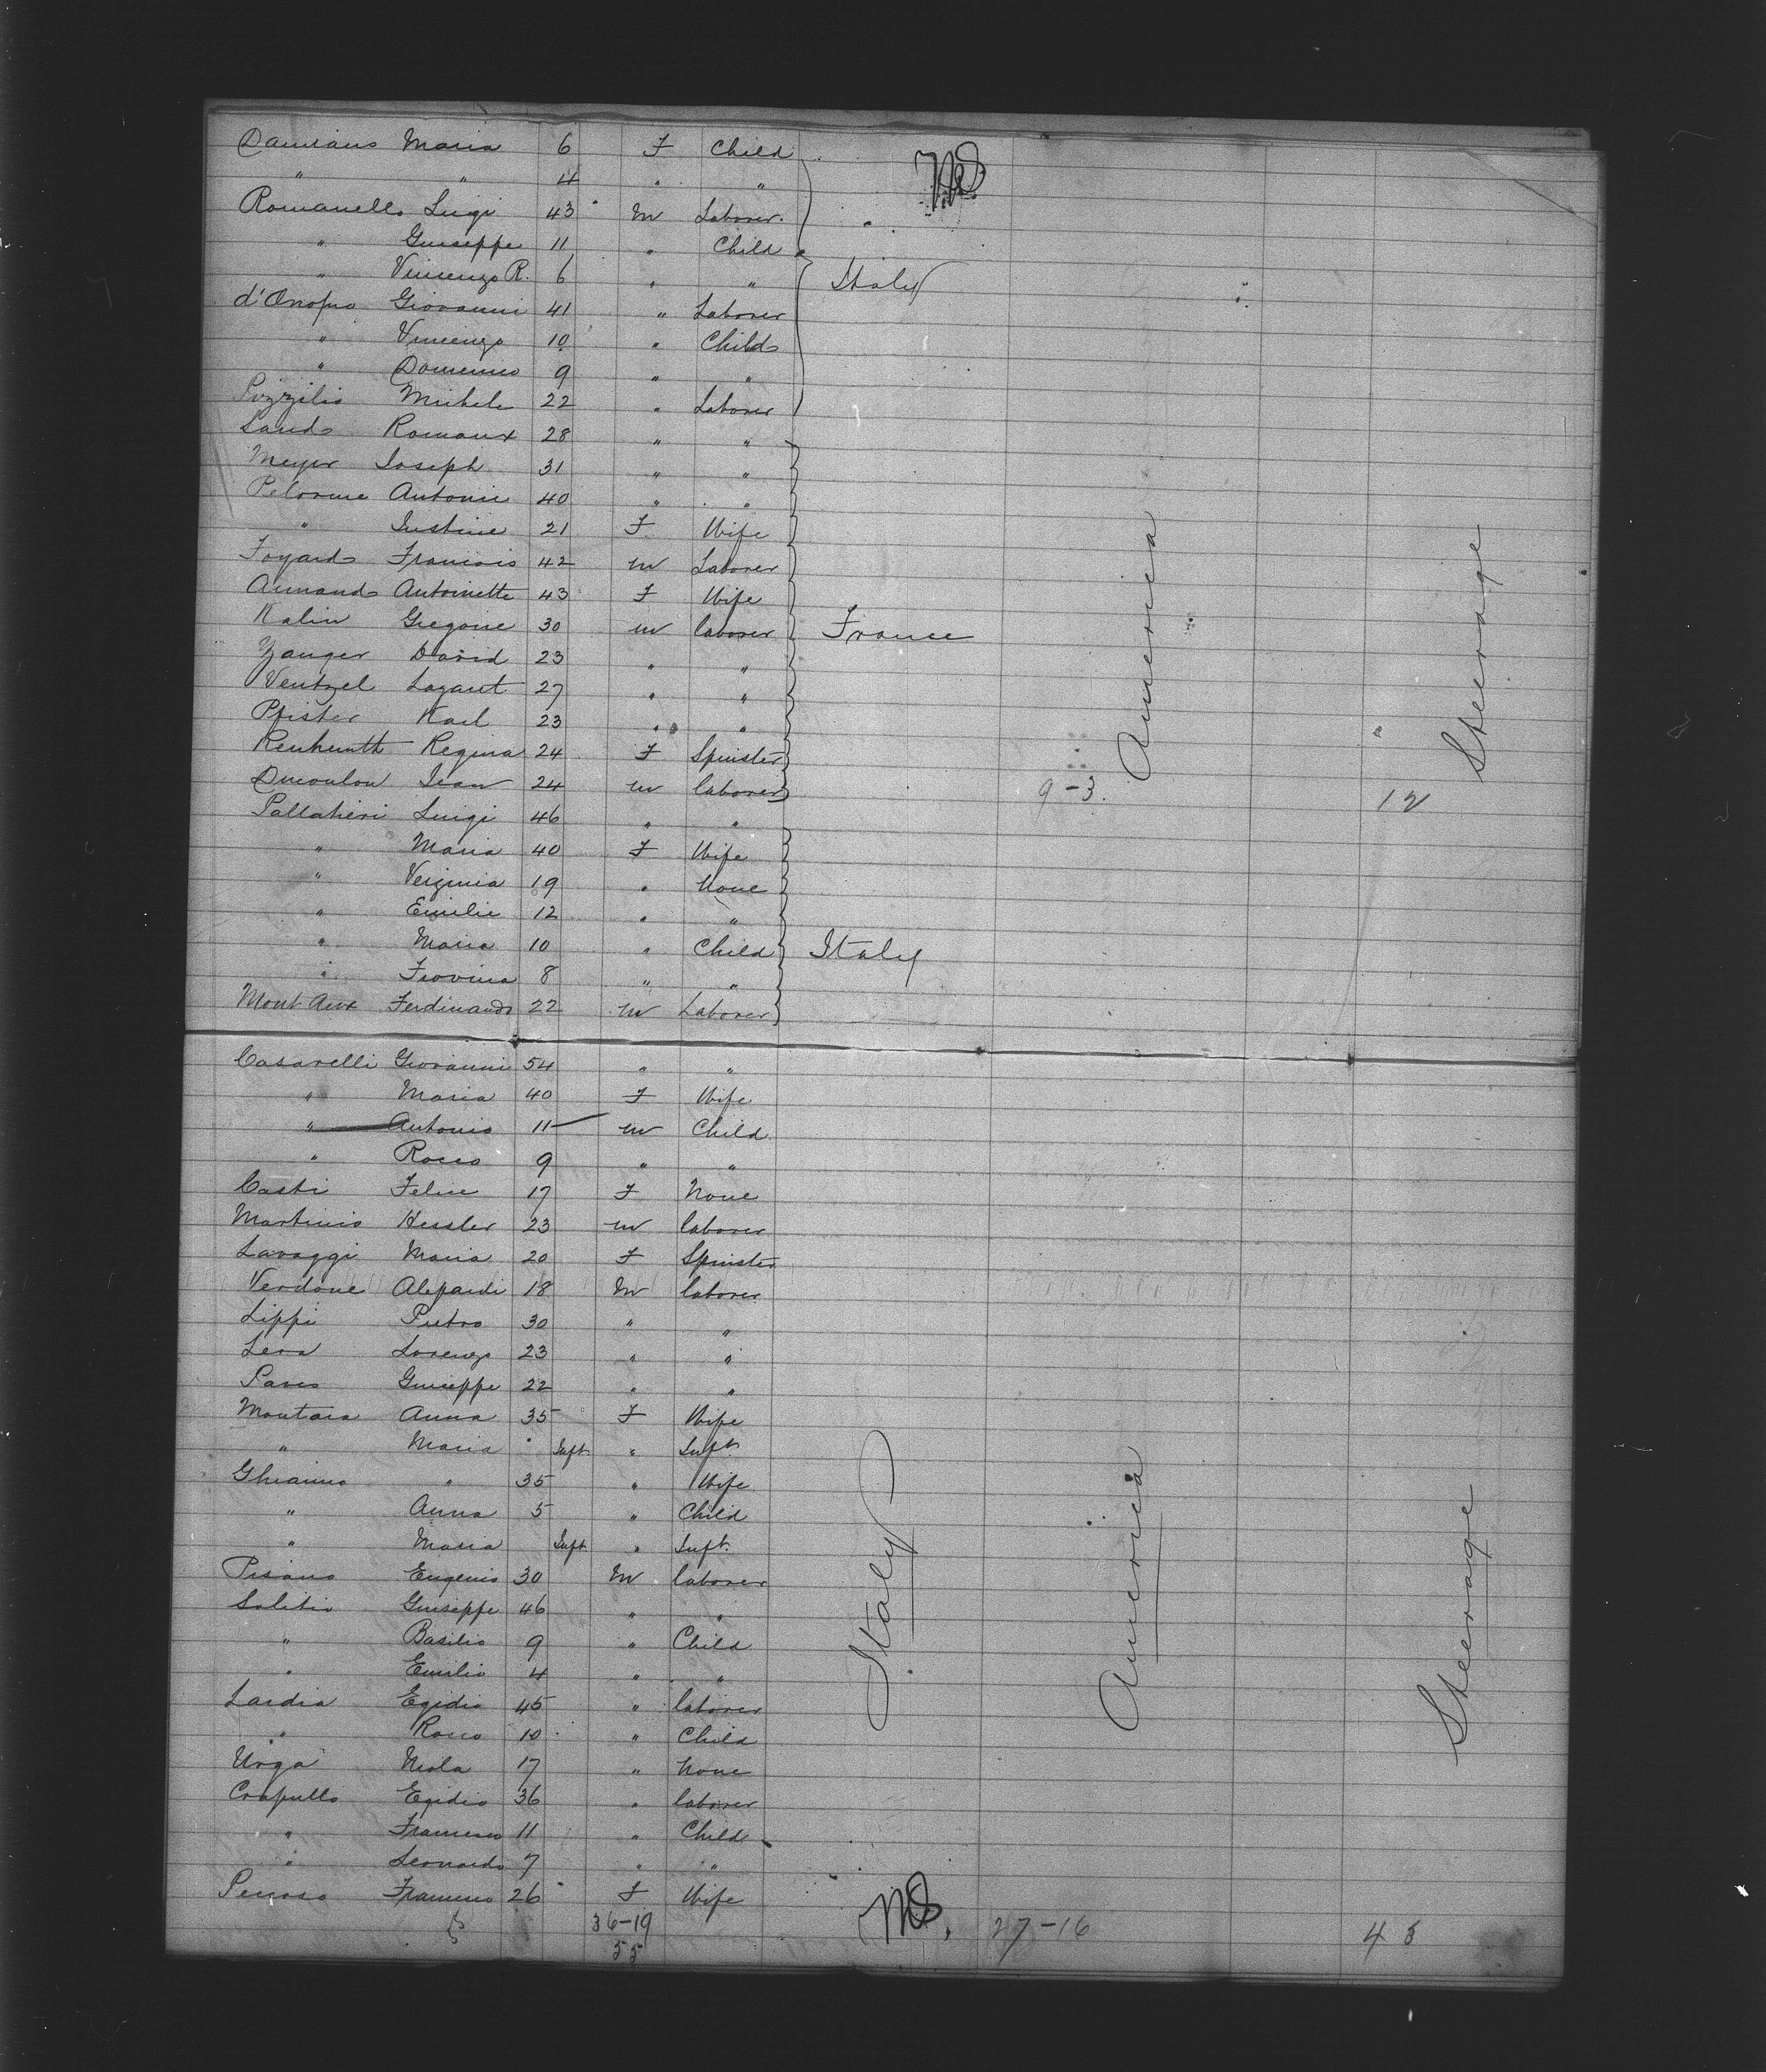 Damiano Maria 6 F Child
" " 4 " "
Romanello Luigi 43 M Laborer
" Giuseppe 11 " Child
" Vincenzo R. 6 " " Italy
d'Onofrio Giovanni 41 " Laborer
" Vincenzo 10 " Child
" Domenico 9 " "
Pizzilio Michele 22 " Laborer
Land Romaux 28 " "
Meyer Joseph 31 " "
Pelorme Antonie 40 " "
" Justine 21 F Wife
Foyard Francois 42 M Laborer
Armand Antoinette 43 F Wife
Kalin Gregoire 30 M laborer France
Zanger David 23 " "
Ventzel Lazant 27 " "
Pfister Karl 23 " "
Regina 24 F Spinster
Ducoulon Jean 24 M laborer 9-3. 12
Pallahiri Luigi 46 " "
" Maria 40 F Wife
" Verginia 19 " None
" Emilie 12 " "
" Maria 10 " Child Italy
" 8 " "
Mont Aux Ferdinando 22 M Laborer
America
Steerage
Casarelli Giovanni 54 " "
" Maria 40 F Wife
" Antonio 11 M Child
" Rocco 9 " "
Casti Felice 17 F None
Martinis Hessler 23 M laborer
Lavaggi Maria 20 F Spinster
Verdone 18 M laborer
Lippi Pietro 30 " "
Lera Lorenzo 23 " "
Giuseppe 22 " "
Montara Anna 35 F Wife
" Maria Inft " Inft
Ghianno " 35 " Wife
" Anna 5 " Child
" Maria Inft " Inft.
Pisano Eugenio 30 M laborer
Solitio Giuseppe 46 " "
" Basilio 9 " Child
" Emilio 4 " "
Lardia Egidio 45 " laborer
" Rocco 10 " Child
Urga Nicola 17 " None
Egidio 36 " laborer
" Francesco 11 " Child
" Leonardo 7 " "
Francesco 26 F Wife
Italy
America
Steerage
36-19 27-16 43
55